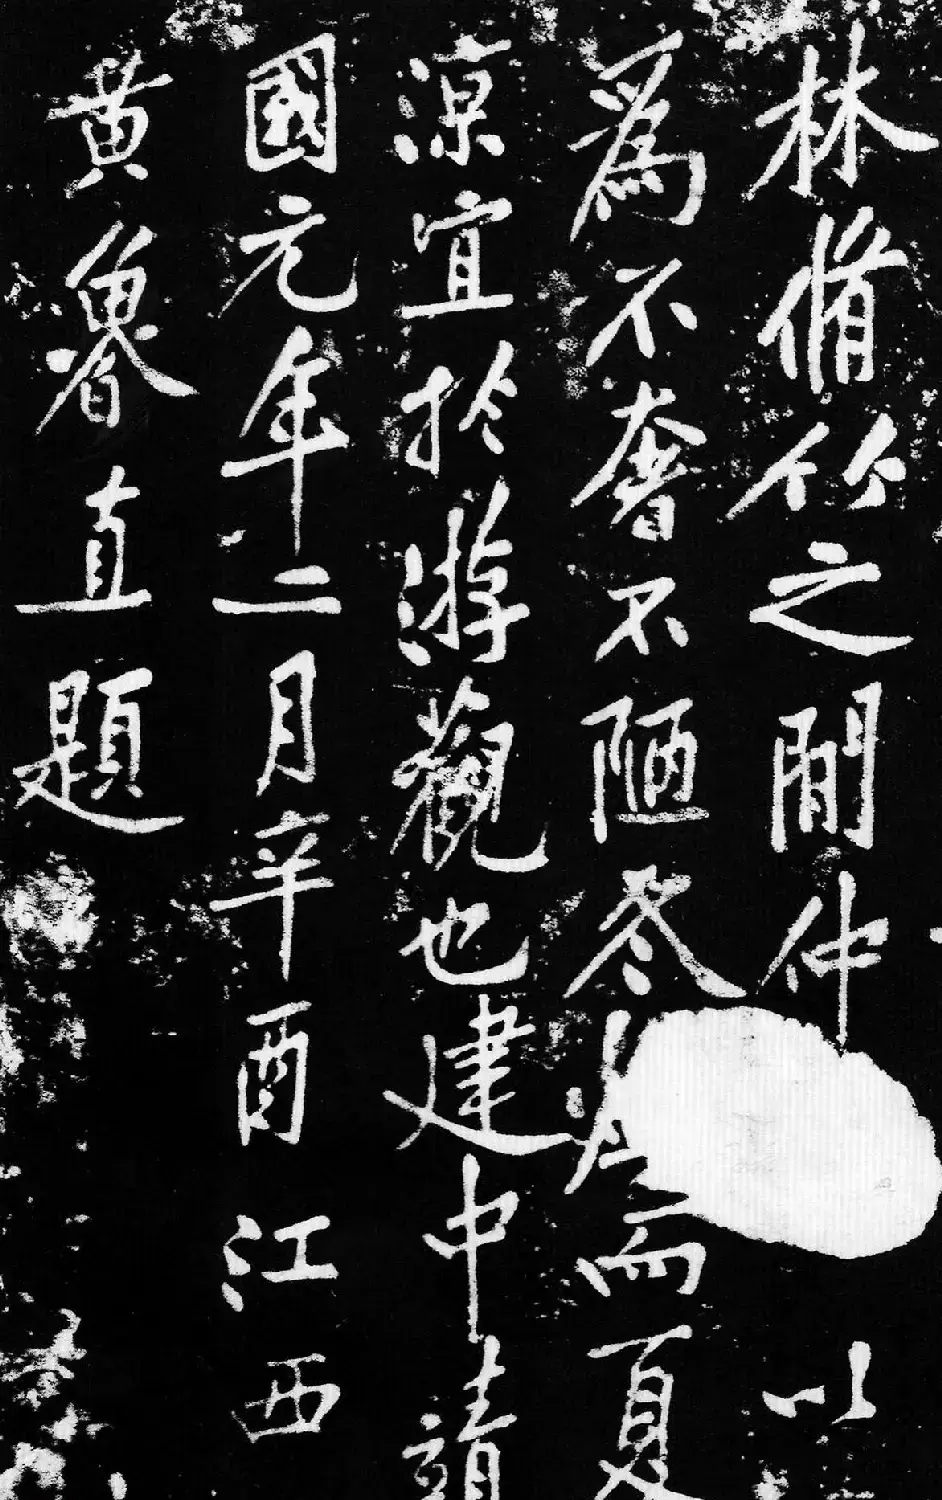 林脩竹之間仲以
為不奢不陋冬而夏
涼宜於游觀也建中靖
國元年二月辛酉江西
黃魯直題